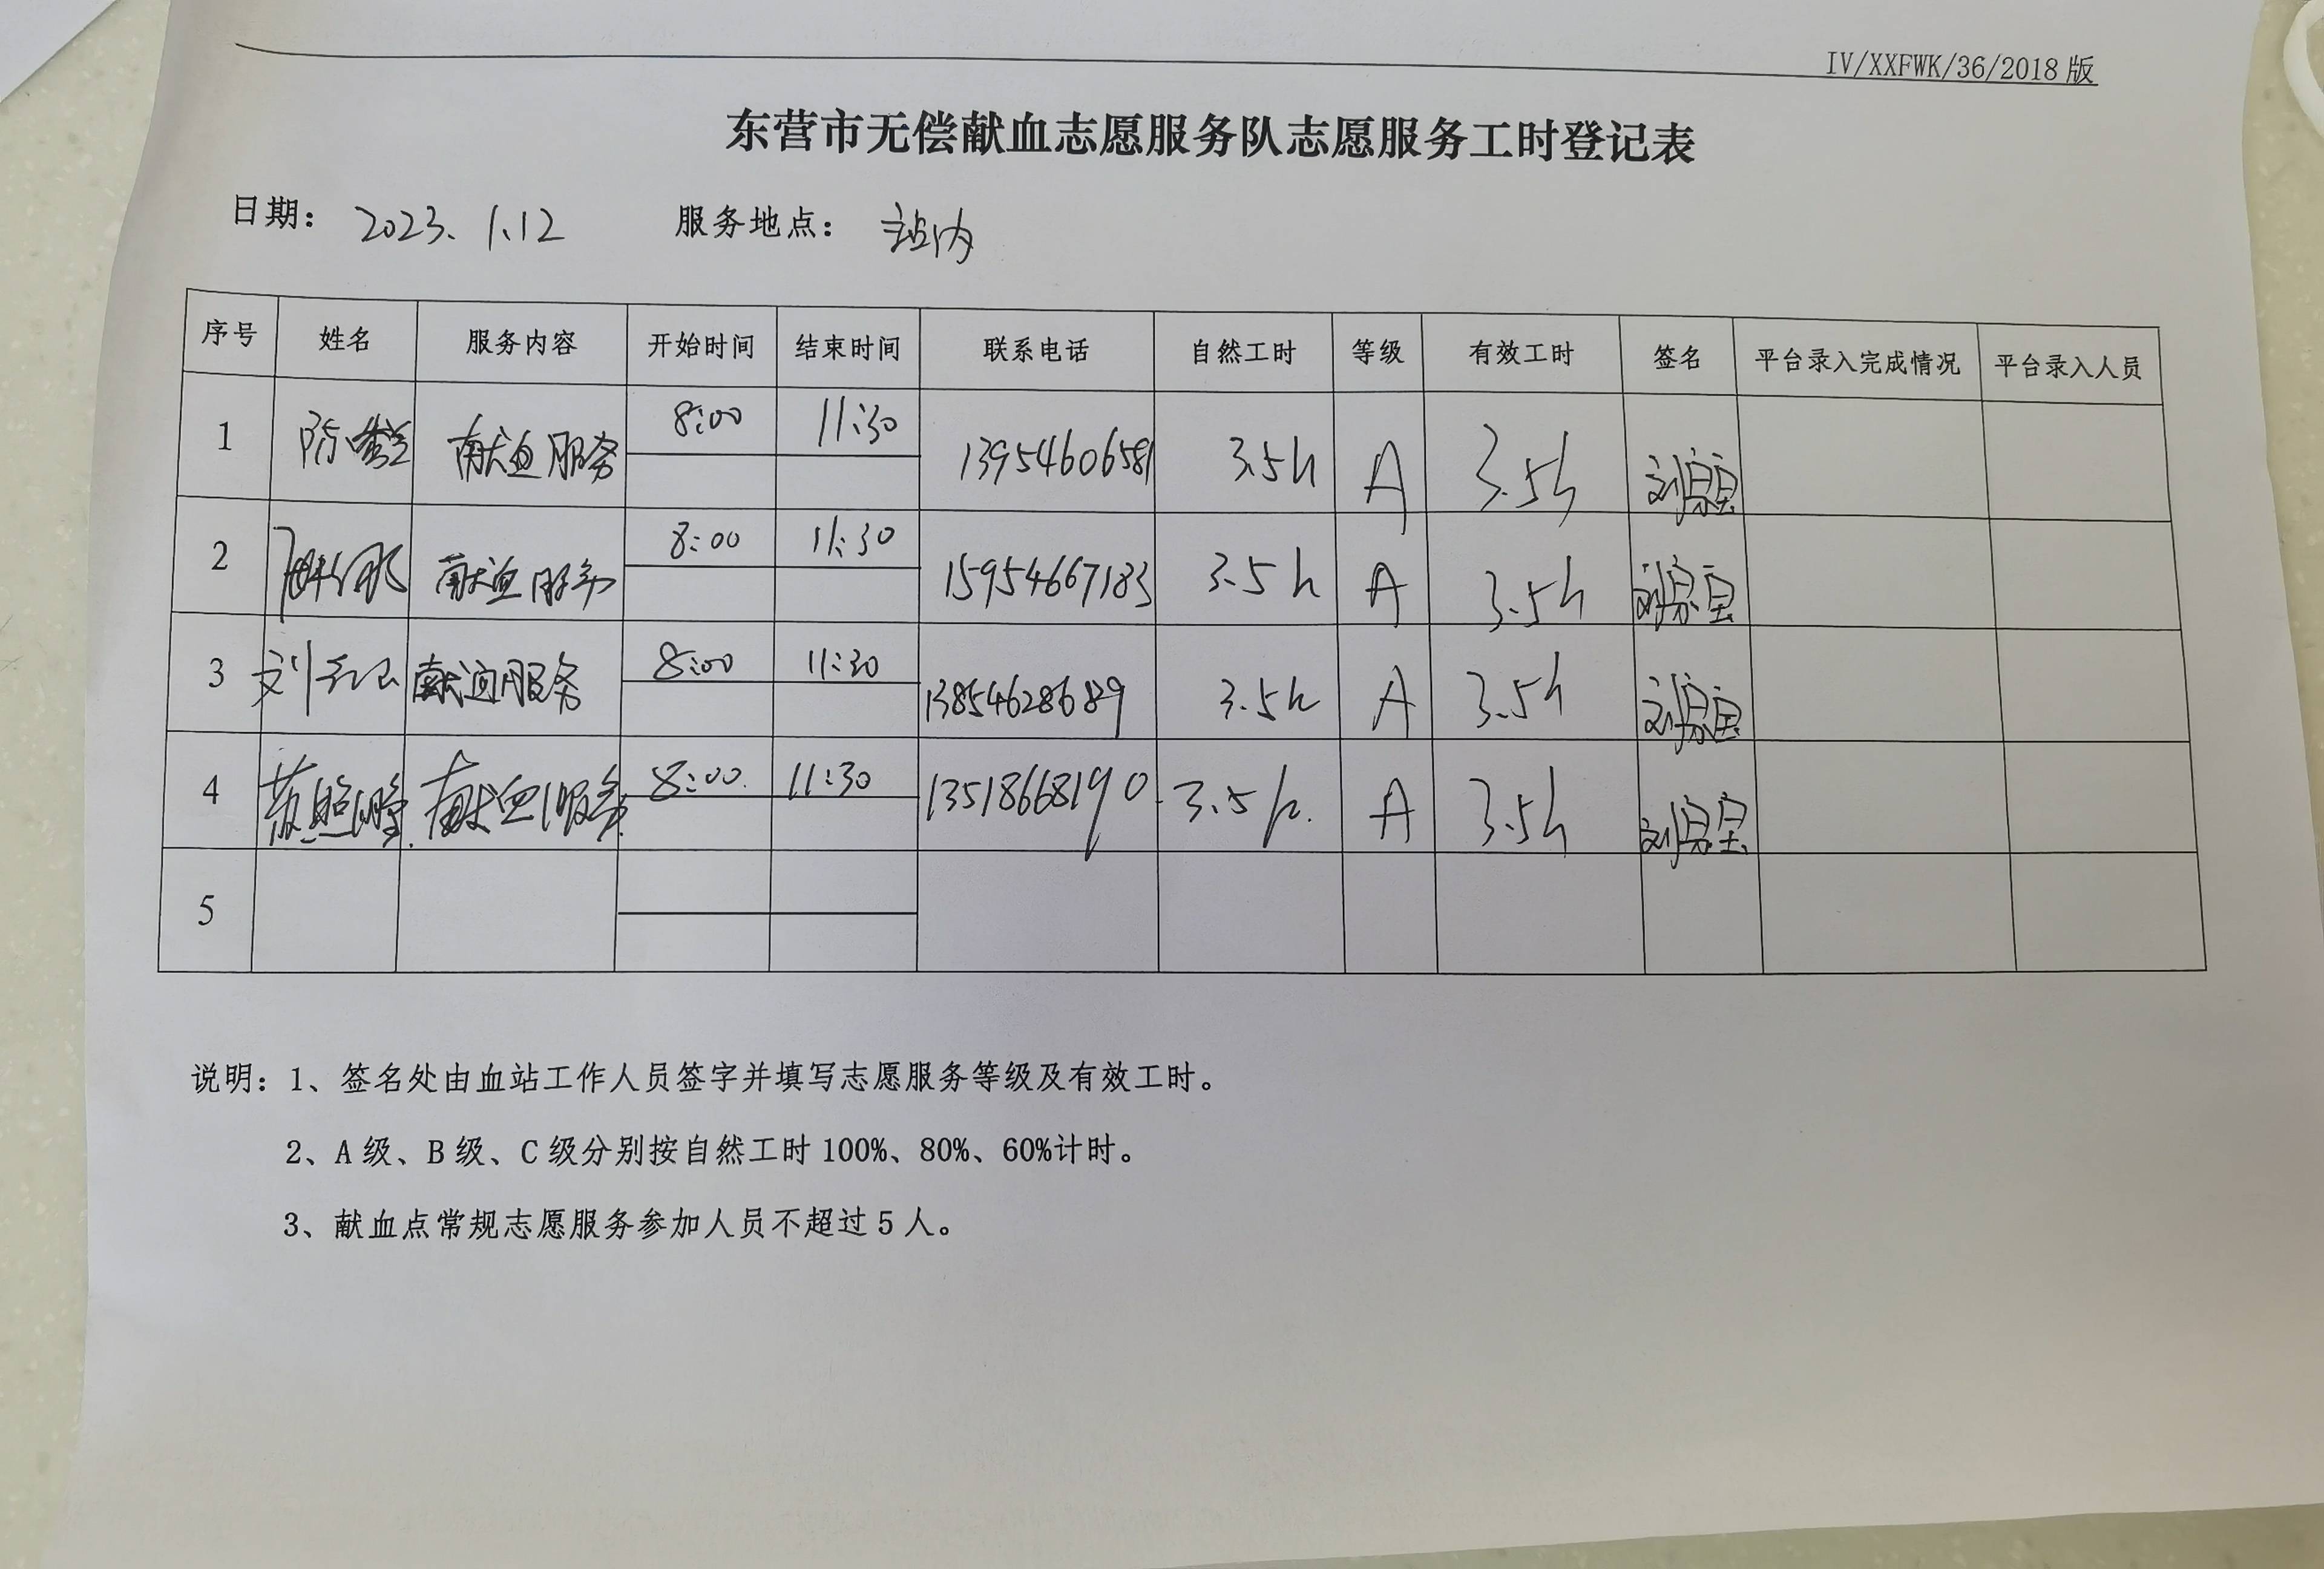 IV/XXFWK/36/2018版
东营市无偿献血志愿服务队志愿服务工时登记表
日期： 2023.1.12 服务地点： 站内
序号 姓名 服务内容 开始时间 结束时间 联系电话 自然工时 等级 有效工时 签名 平台录入完成情况 平台录入人员
1 献血服务 8:00 11:30 13954606581 3.5h A 3.5h
2 献血服务 8:00 11:30 15954667183 3.5h A 3.5h
3 刘 献血服务 8:00 11:30 13854628689 3.5h A 3.5h
4 苏照鹏 献血服务 8:00 11:30 13518668190 3.5h A 3.5h
5
说明：1、签名处由血站工作人员签字并填写志愿服务等级及有效工时。
2、A级、B级、C级分别按自然工时100%、80%、60%计时。
3、献血点常规志愿服务参加人员不超过5人。